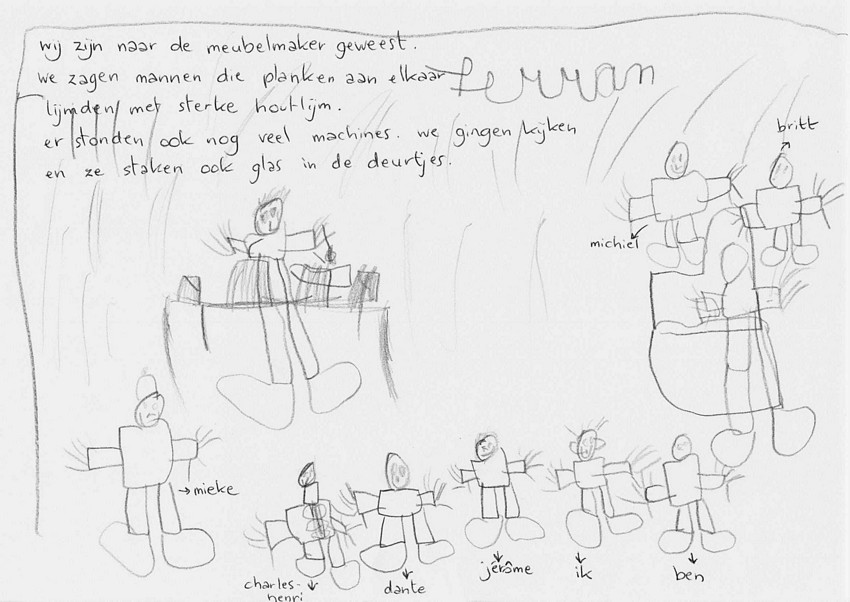 wij zijn naar de meubelmaker geweest.
we zagen mannen die planken aan elkaar
lijmden met sterke houtlijm.
er stonden ook nog veel machines. we gingen kijken
en ze staken ook glas in de deurtjes.
ferran
britt
michiel
mieke
charles-
henri
dante
jérôme
ik
ben